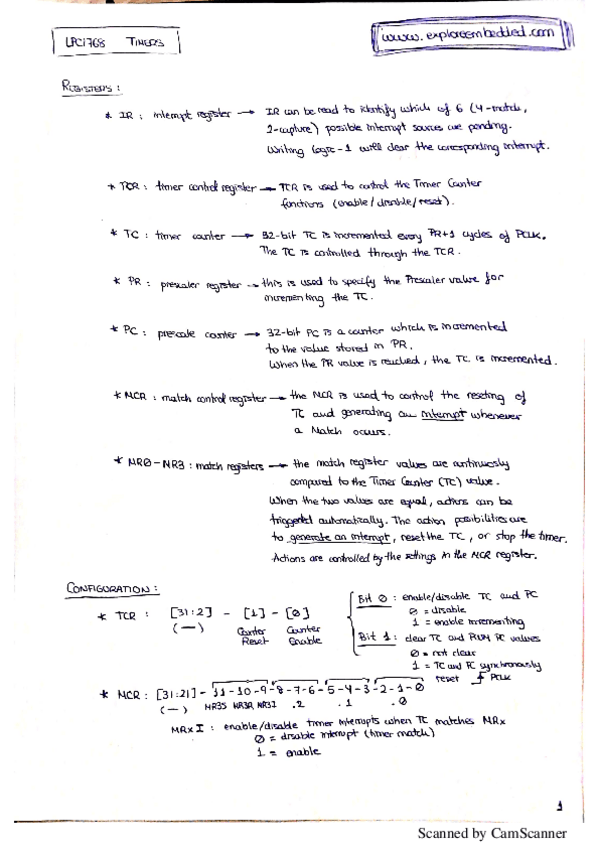 LPC1768 TIMERS
www.exploreembedded.com
REGISTERS:
* IR : interrupt register → IR can be read to identify which of 6 (4-match,
2-capture) possible interrupt sources are pending.
Writing logic-1 will clear the corresponding interrupt.
* TCR : timer control register → TCR is used to control the Timer Counter
functions (enable/disable/reset).
* TC : timer counter → 32-bit TC is incremented every PR+1 cycles of PCLK.
The TC is controlled through the TCR.
* PR : prescaler register → this is used to specify the Prescaler value for
incrementing the TC.
* PC : prescale counter → 32-bit PC is a counter which is incremented
to the value stored in PR.
When the PR value is reached, the TC is incremented.
* MCR : match control register → the MCR is used to control the reseting of
TC and generating an interrupt whenever
a Match occurs.
* MR0-MR3 : match registers → the match register values are continuosly
compared to the Timer Counter (TC) value.
When the two values are equal, actions can be
triggered automatically. The action possibilities are
to generate an interrupt, reset the TC, or stop the timer.
Actions are controlled by the settings in the MCR register.
CONFIGURATION :
* TCR : [31:2] - [1] - [0]
(—) Counter Reset Counter Enable
Bit 0 : enable/disable TC and PC
0 = disable
1 = enable incrementing
Bit 1 : clear TC and PWM PC values
0 = not clear
1 = TC and PC synchronously
reset PCLK
* MCR : [31:21] - 11-10-9-8-7-6-5-4-3-2-1-0
(—) MR3S MR3R MR3I .2 .1 .0
MRxI : enable/disable timer interrupts when TC matches MRx
0 = disable interrupt (timer match)
1 = enable
1
Scanned by CamScanner